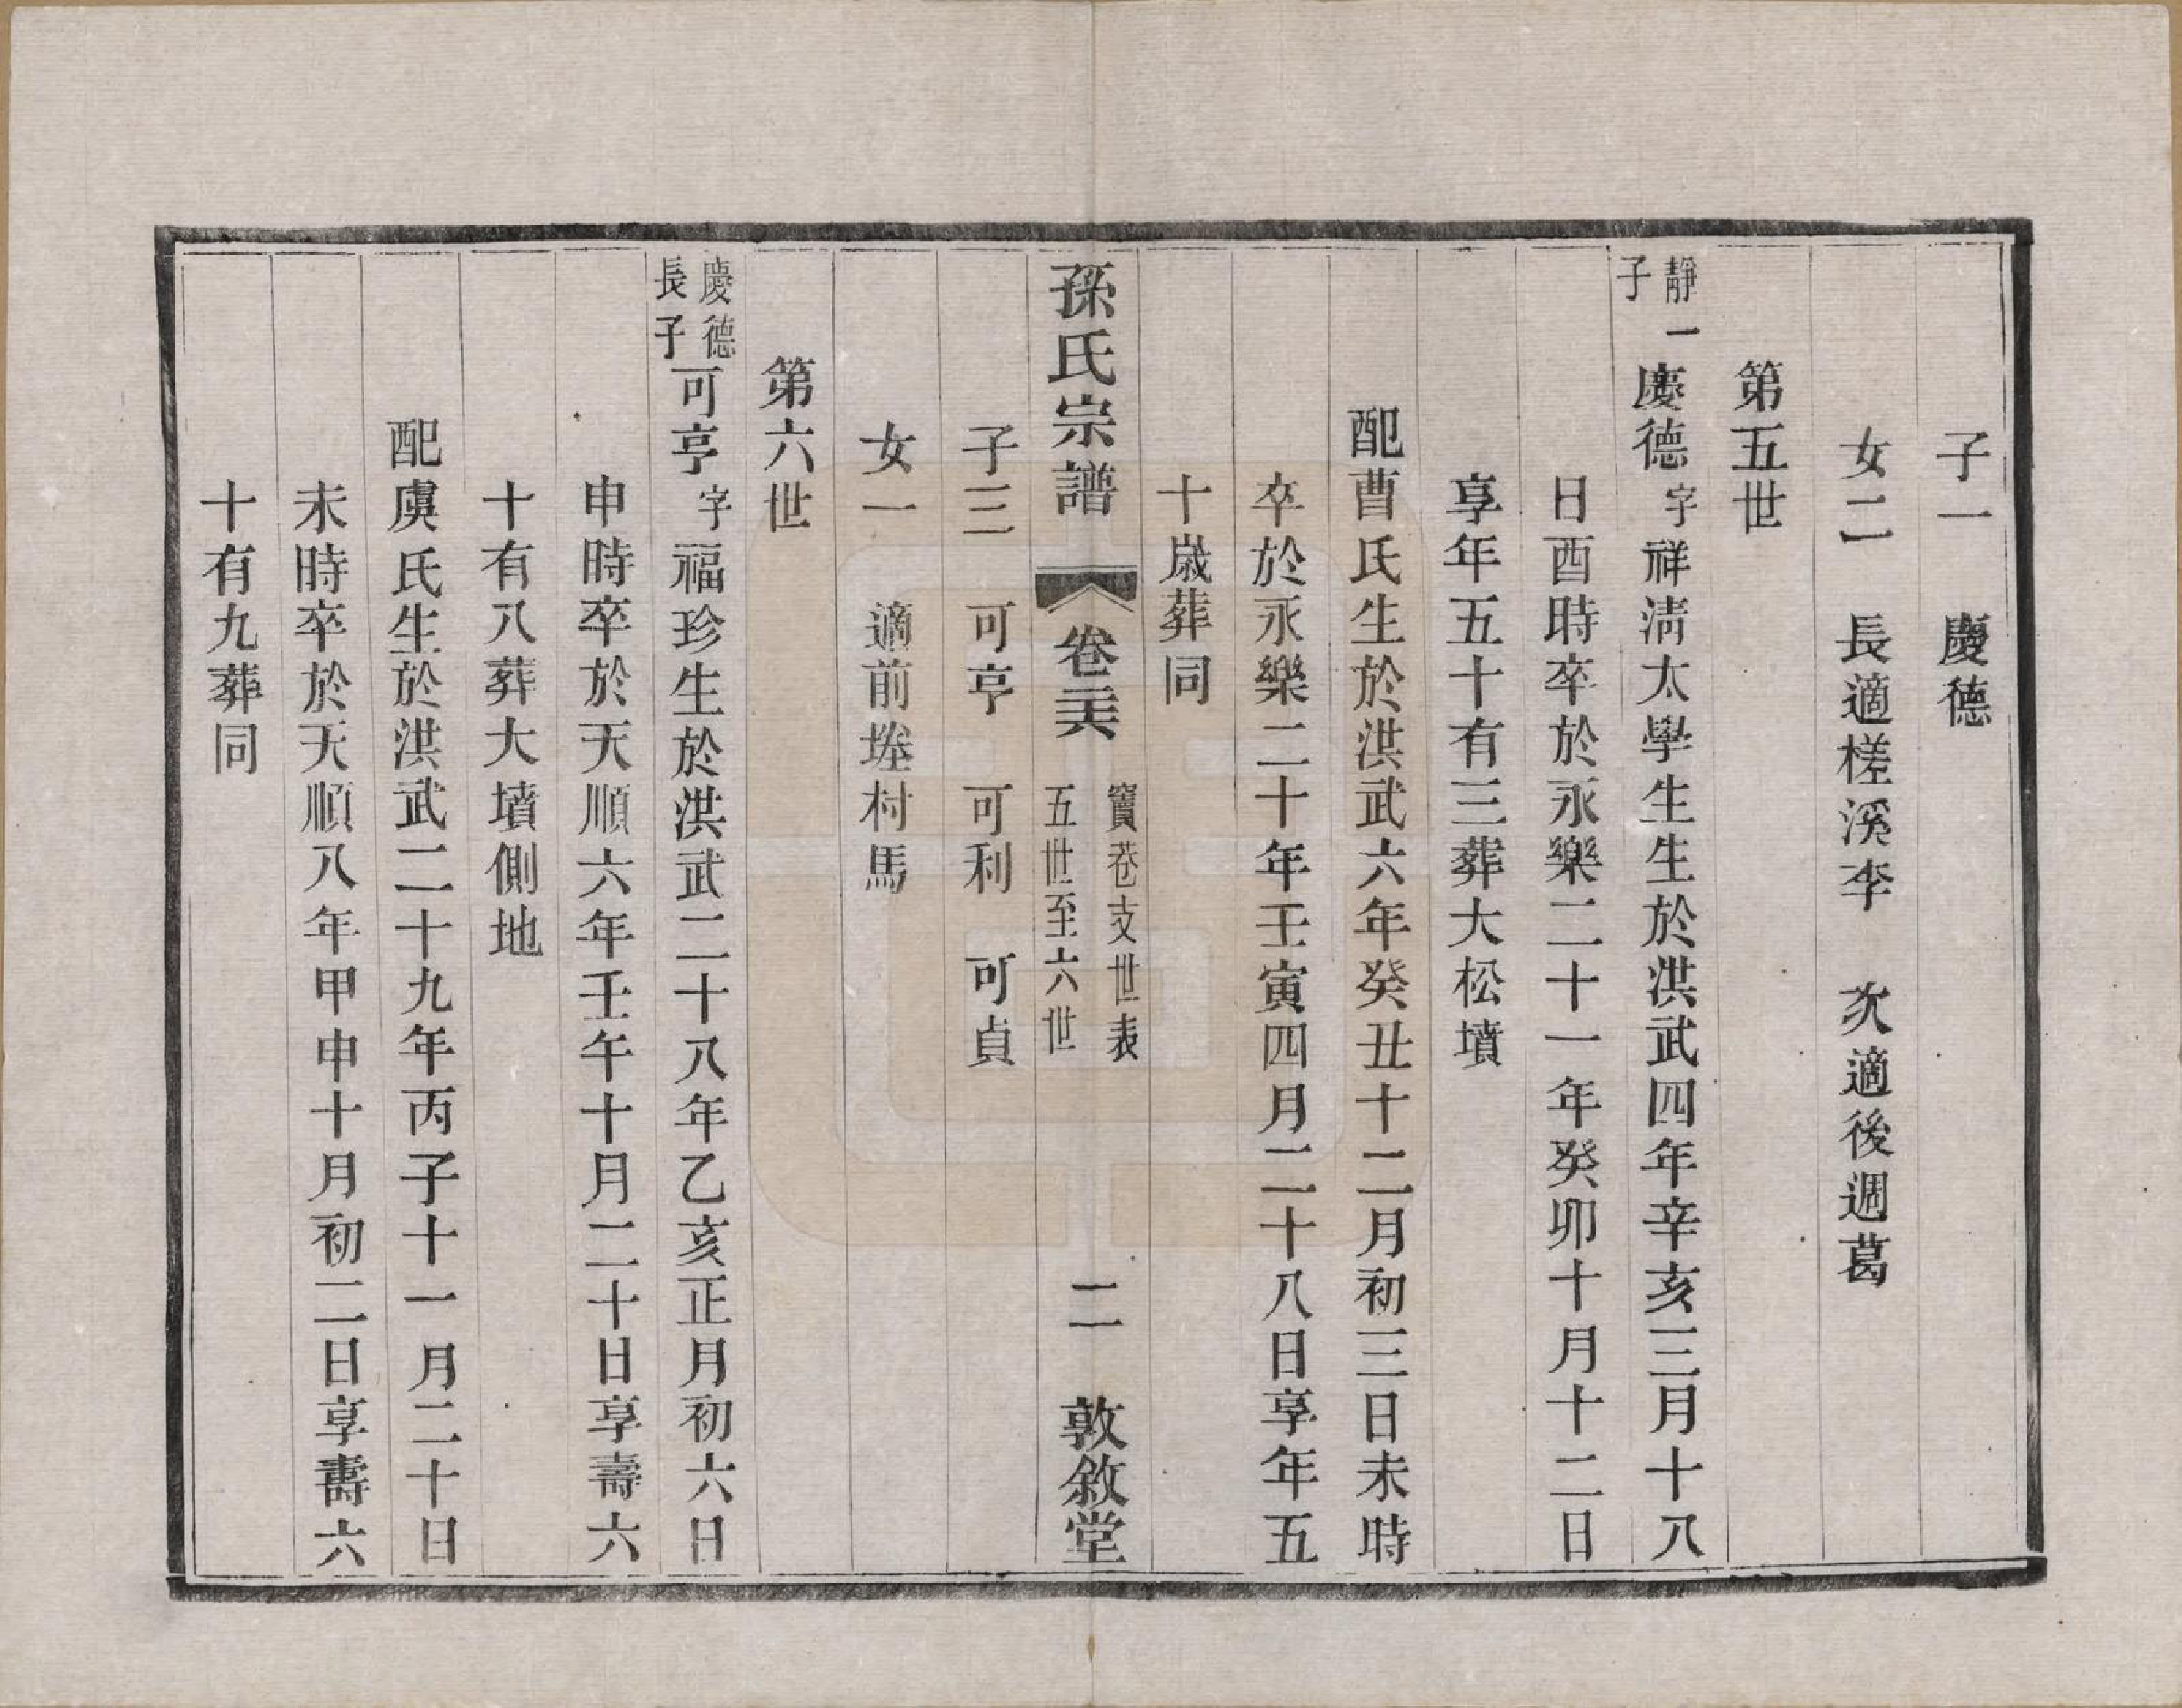 子一　慶德
女二　長適槎溪李　次適後週葛
第五世
靜一子慶德字祥淸太學生生於洪武四年辛亥三月十八
日酉時卒於永樂二十一年癸卯十月十二日
享年五十有三葬大松墳
配曹氏生於洪武六年癸丑十二月初三日未時
卒於永樂二十年壬寅四月二十八日享年五
十歲葬同
孫氏宗譜　卷三六　寶巷支世表五世至六世　二　敦敘堂
子三　可亨　可利　可貞
女一　適前塍村馬
第六世
慶德長子可亨字福珍生於洪武二十八年乙亥正月初六日
申時卒於天順六年壬午十月二十日享壽六
十有八葬大墳側地
配虞氏生於洪武二十九年丙子十一月二十日
未時卒於天順八年甲申十月初二日享壽六
十有九葬同